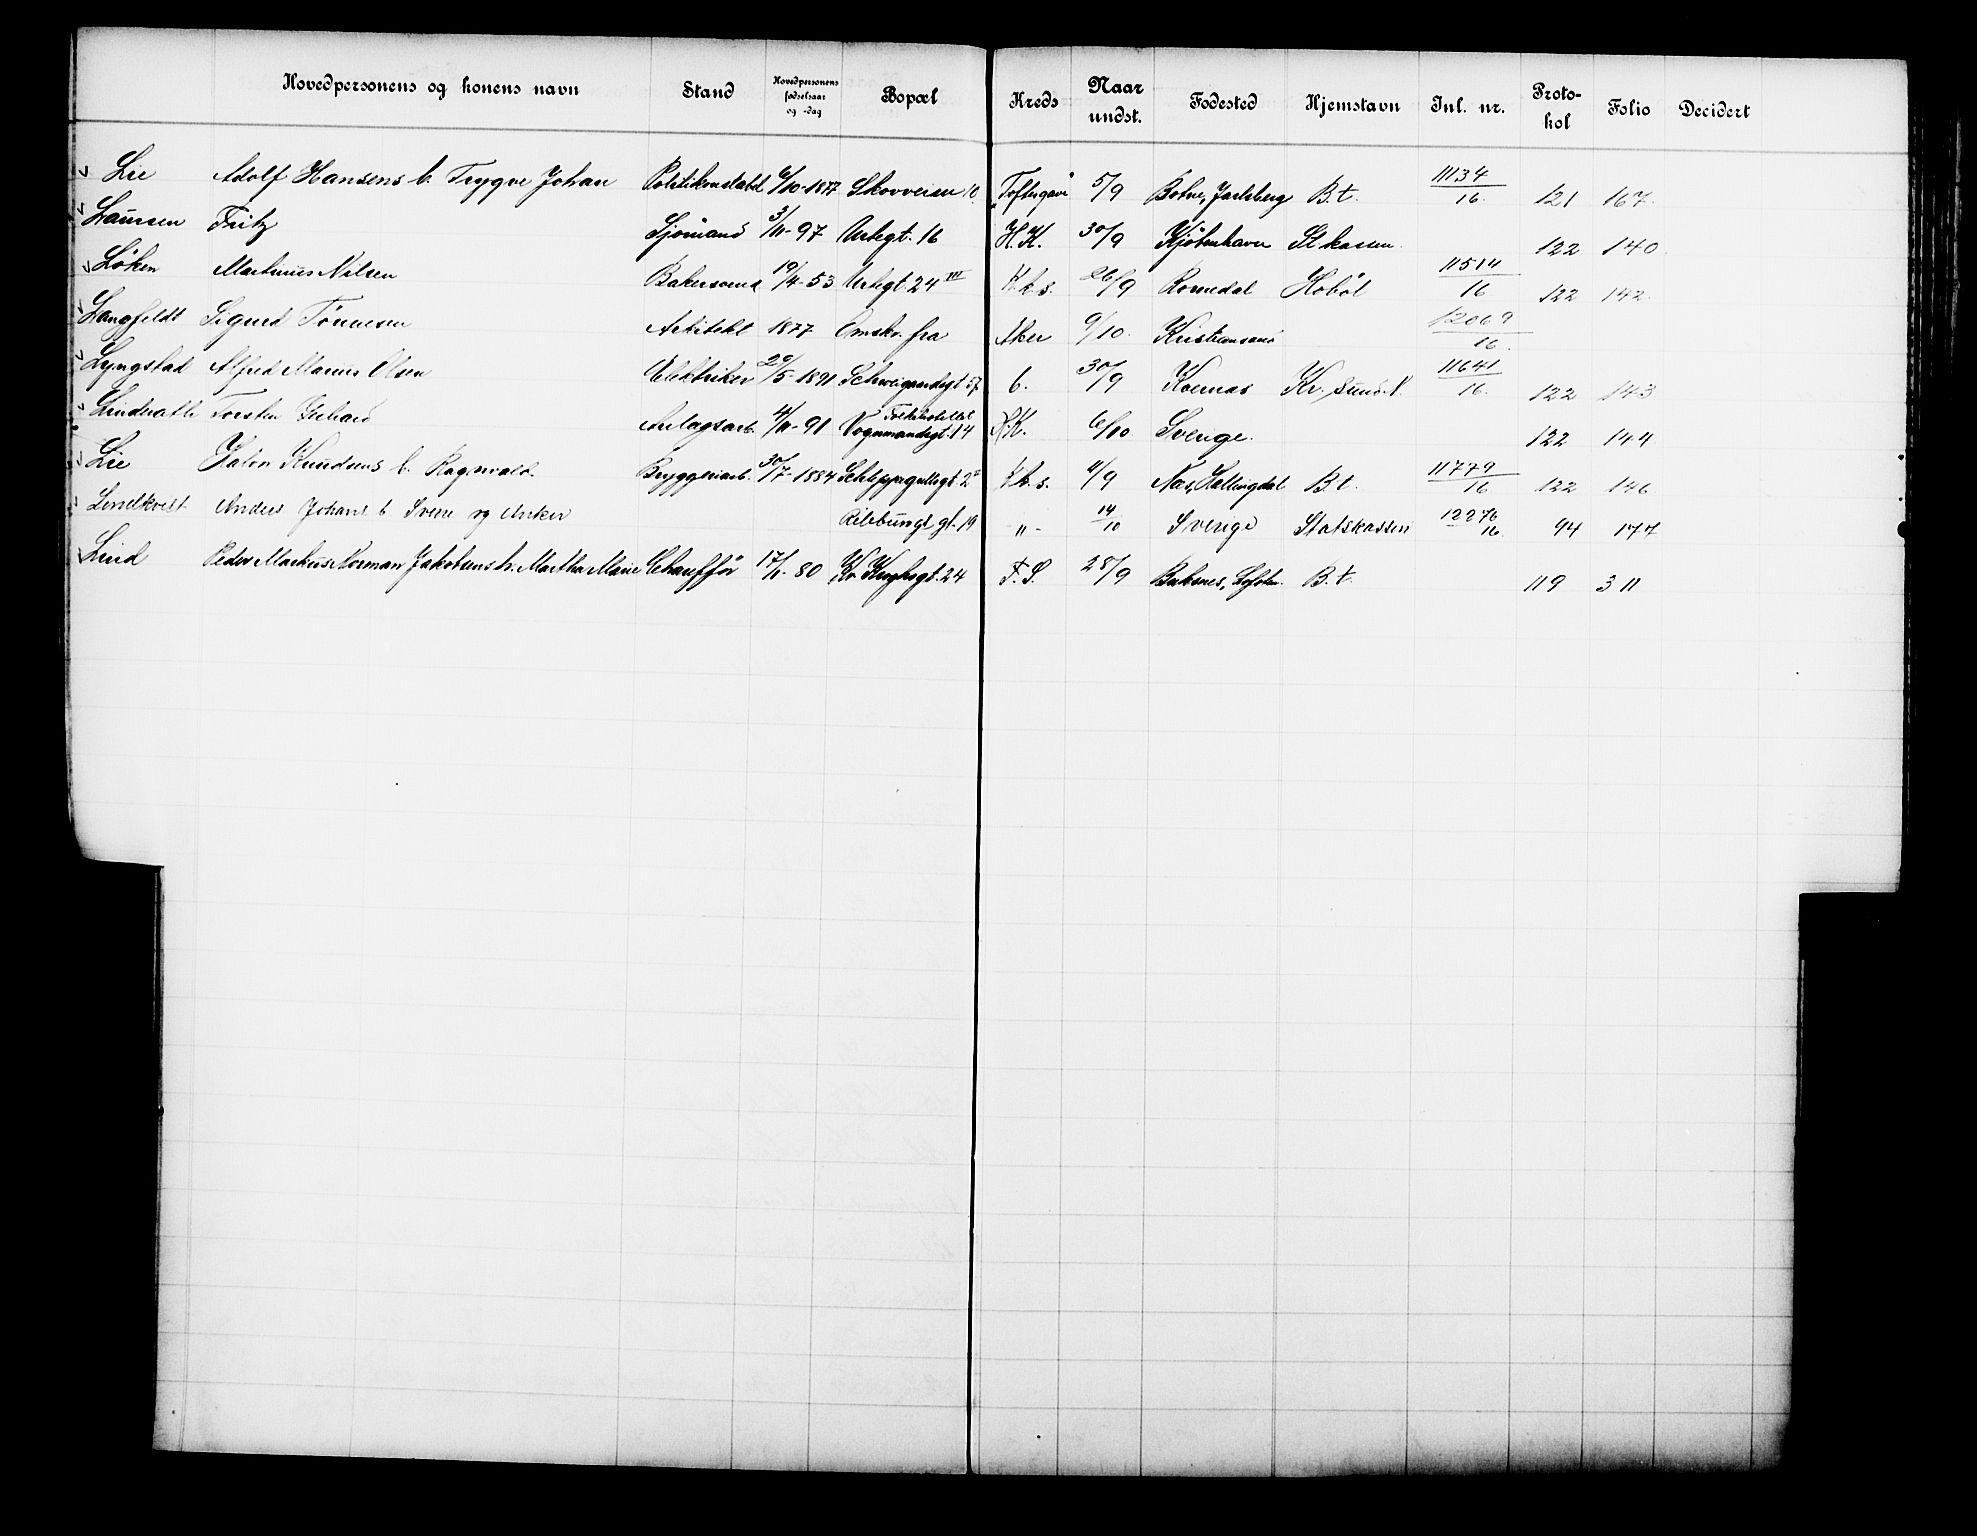 Hovedpersonens og konens navn Stand Hovedpersonens fødselsaar og -dag Bopæl Kreds Naar undst. Fødested Hjemstavn Inl. nr. Proto-kol Folio Decidert
Lie Adolf Hansens b. Trygve Johan Politikonstabel 6/10-1877 Skovveien 10 Toftesgave 5/9 Botne, Jarlsberg B.t. 11134/16 121 167
Laursen Fritz Sjømand 3/11-97 Urtegt. 16 H.K. 30/9 Kjøbenhavn St kassen 122 140
Løken Martinius Nilsen Bakersvend 19/4-53 Urtegt 24 III K.k.s. 26/9 Romedal Hobøl 11514/16 122 142
Langfeldt Sigurd Tønnesen Arkitekt 1877 Omskr. fra Aker 9/10 Kristiansand 12069/16
Lyngstad Alfred Marius Olsen Elektriker 20/5-1891 Schweigaardsgt 57 6. 30/9 Kvernæs Kr. sund N. 11641/16 122 143
Torsten Anlagsarb. 4/11-91 Folkehotellet Vognmandsgt. 14 H.K. 6/10 Sverige 122 144
Lie Knudsens b. Ragnvald Bryggeriarb. 30/7-1884 Schleppegrellsgt 2 K.k.s. 11/9 Næs, Hallingdal B.t. 11779/16 122 146
Lindkvist Anders Johans b Sverre og Anker Rilebungs gt. 19 " - 14/10 Sverige Statskassen 12276/16 94 177
Lind Peder Markus Norman Jakobsens h. Martha Marie Chauffør 17/1-80 Kr. Kroghsgt. 24 F.S. 28/9 Buksnes, Lofoten B.t. 119 311